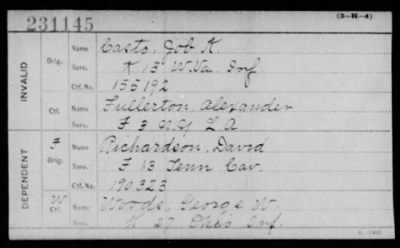 231145
(3-H-4)
INVALID
Orig.
Name Casto, Job K.
Serv. K 13 W.Va. Inf
Ctf. No. 155192
Ctf.
Name Fullerton, Alexander
Serv. F 3 N.Y. L A
DEPENDENT
F
Orig.
Name Richardson, David
Serv. F 13 Tenn Cav.
Ctf. No. 190323
W
Ctf.
Name Woods, George W.
Serv. K 27 Ohio Inf.